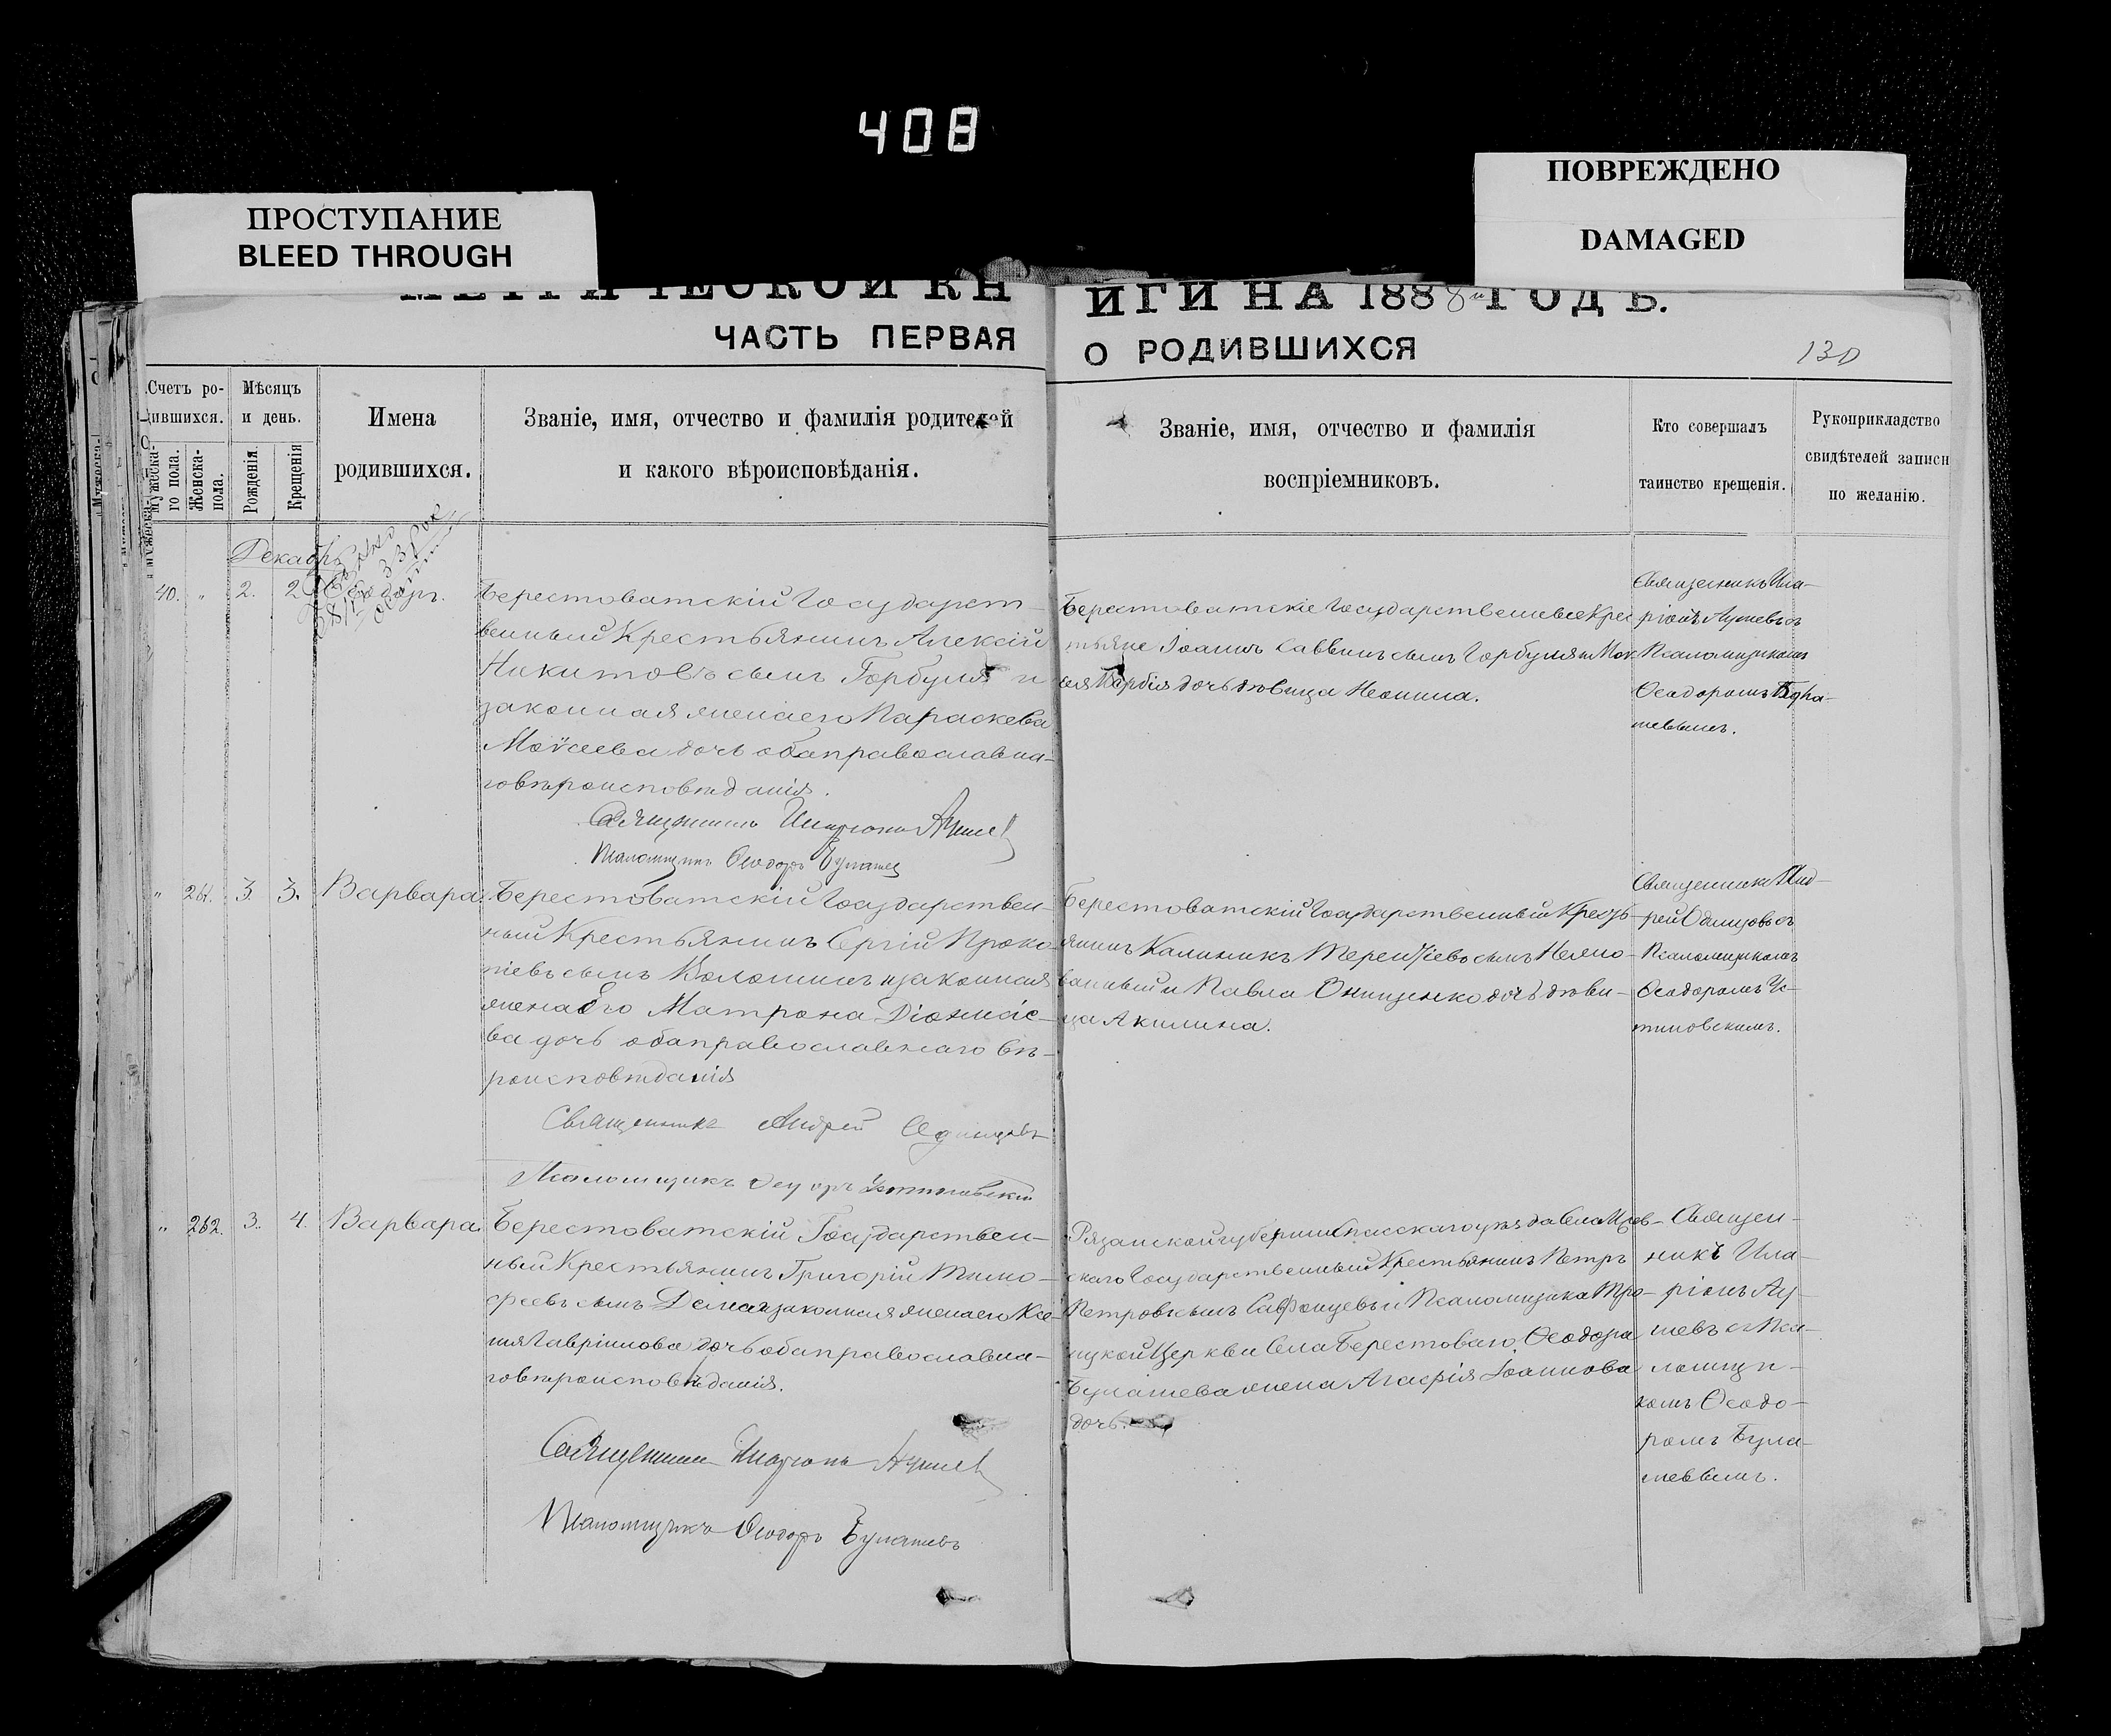 408
ПРОСТУПАНИЕ
BLEED THROUGH
ПОВРЕЖДЕНО
DAMAGED
МЕТРИЧЕСКОЙ КНИГИ НА 1888й ГОДЪ.
ЧАСТЬ ПЕРВАЯ О РОДИВШИХСЯ
130
Счетъ ро-
дившихся.
Мужеска-
го пола.
Женска-
пола.
Мѣсяцъ
и день.
Рожденія.
Крещенія
Имена
родившихся.
Званіе, имя, отчество и фамилія родителей
и какого вѣроисповѣданія.
Званіе, имя, отчество и фамилія
воспріемниковъ.
Кто совершалъ
таинство крещенія.
Рукоприкладство
свидѣтелей записи
по желанію.
Декабрь
40. " 2. 2 Ѳеодоръ.
Берестоватскій Государст-
венный Крестьянинъ Алексій
Никитовъ сынъ Горбуля и
законная жена его Параскева
Моѵсеева дочь оба православна-
го вѣроисповѣданія.
Священникъ Иларіонъ
Псаломщикъ Ѳеодоръ Булашев
Берестоватскіе Государственные Крес
тьяне Іоаннъ Саввинъ сынъ Горбуля и Мок
дочь дѣвица Неонила.
Священникъ Ила-
ріонъ съ
Псаломщикомъ
Ѳеодоромъ Була-
шевымъ.
" 261. 3. 3. Варвара.
Берестоватскій Государствен-
ный Крестьянинъ Сергій Проко-
піевъ сынъ Волошинъ и законная
жена его Матрона
ва дочь оба православнаго вѣ-
роисповѣданія
Священникъ Андрей Одинцовъ
Псаломщикъ Ѳеодоръ Устиновскій
Берестоватскій Государственный Кресть-
янинъ Калиникъ Терентіевъ сынъ
и Павла Онищенко дочь дѣви-
ца Акилина.
Священникъ Анд-
рей Одинцовъ съ
Псаломщикомъ
Ѳеодоромъ Ус-
тиновскимъ.
" 262. 3. 4. Варвара.
Берестоватскій Государствен-
ный Крестьянинъ Григорій Тимо-
феевъ сынъ и законная жена его Ксе-
нія Гавріилова дочь оба православна-
го вѣроисповѣданія.
Священникъ Иларіонъ
Псаломщикъ Ѳеодоръ Булашевъ
Рязанской губерніи Спасскаго уѣзда Села
скаго Государственный Крестьянинъ Петръ
Петровъ сынъ и Псаломщика Тро-
ицкой Церкви Села Берестоваго Ѳеодора
Булашева жена Агафія Іоаннова
дочь.
Священ-
никъ Ила-
ріонъ
съ Пса-
ломщи-
комъ Ѳеодо-
ромъ Була-
шевымъ.